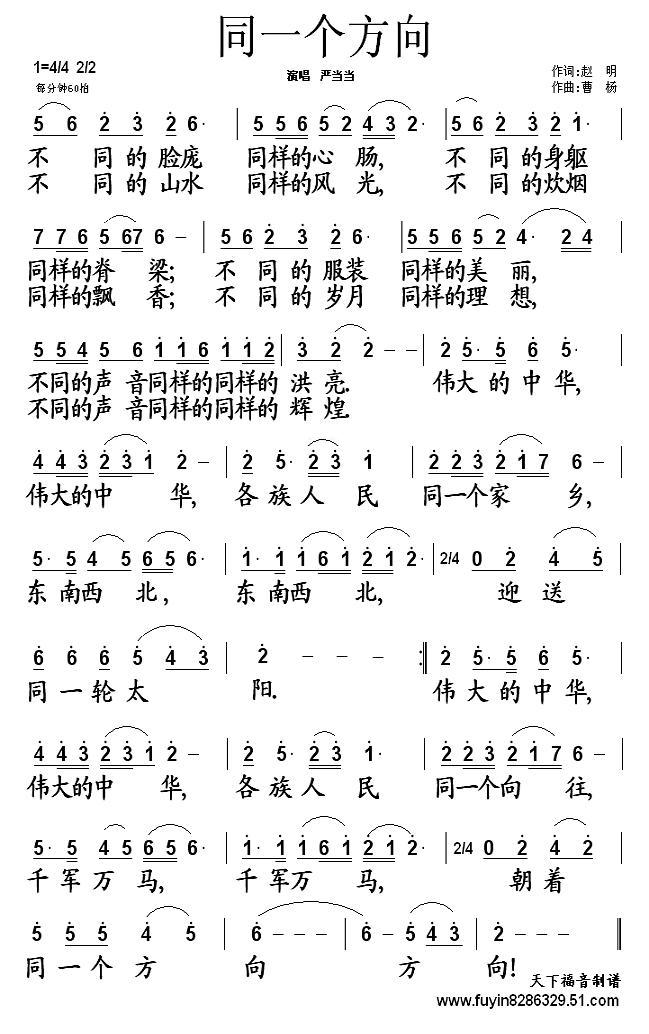 同一个方向
1=4/4 2/2
每分钟60拍
演唱 严当当
作词:赵 明
作曲:曹 杨
5 6 2 3 2 6· | 5 5 6 5 2 4 3 2· | 5 6 2 3 2 1· |
不 同 的 脸庞 同样的心 肠, 不 同 的身躯
不 同 的 山水 同样的风 光, 不 同 的炊烟
7 7 6 5 6 7 6 – | 5 6 2 3 2 6· | 5 5 6 5 2 4· 2 4 |
同样的脊 梁; 不 同 的 服装 同样的美 丽,
同样的飘 香; 不 同 的 岁月 同样的理 想,
5 5 4 5 6 1 1 6 1 1 2 | 3 2 2 – – | 2 5· 5 6 5· |
不同的声 音同样的同样的 洪 亮. 伟大 的 中 华,
不同的声 音同样的同样的 辉 煌.
4 4 3 2 3 1 2 – | 2 5· 2 3 1 | 2 2 3 2 1 7 6 – |
伟大的中 华, 各 族 人 民 同一个家 乡,
5· 5 4 5 6 5 6· | 1· 1 1 6 1 2 1 2· | 2/4 0 2 4 5 |
东 南西 北, 东 南西 北, 迎 送
6 6 6 5 4 3 | 2 – – – :‖ 2 5· 5 6 5· |
同 一 轮 太 阳. 伟 大 的 中 华,
4 4 3 2 3 1 2 – | 2 5· 2 3 1· | 2 2 3 2 1 7 6 – |
伟大的中 华, 各 族 人 民 同一个向 往,
5· 5 4 5 6 5 6· | 1· 1 1 6 1 2 1 2· | 2/4 0 2 4 2 |
千 军 万 马, 千 军万 马, 朝 着
5 5 5 4 5 | 6 – – | 6 – 5 4 3 | 2 – – ‖
同 一 个 方 向 方 向!
天下福音制谱
www.fuyin8286329.51.com